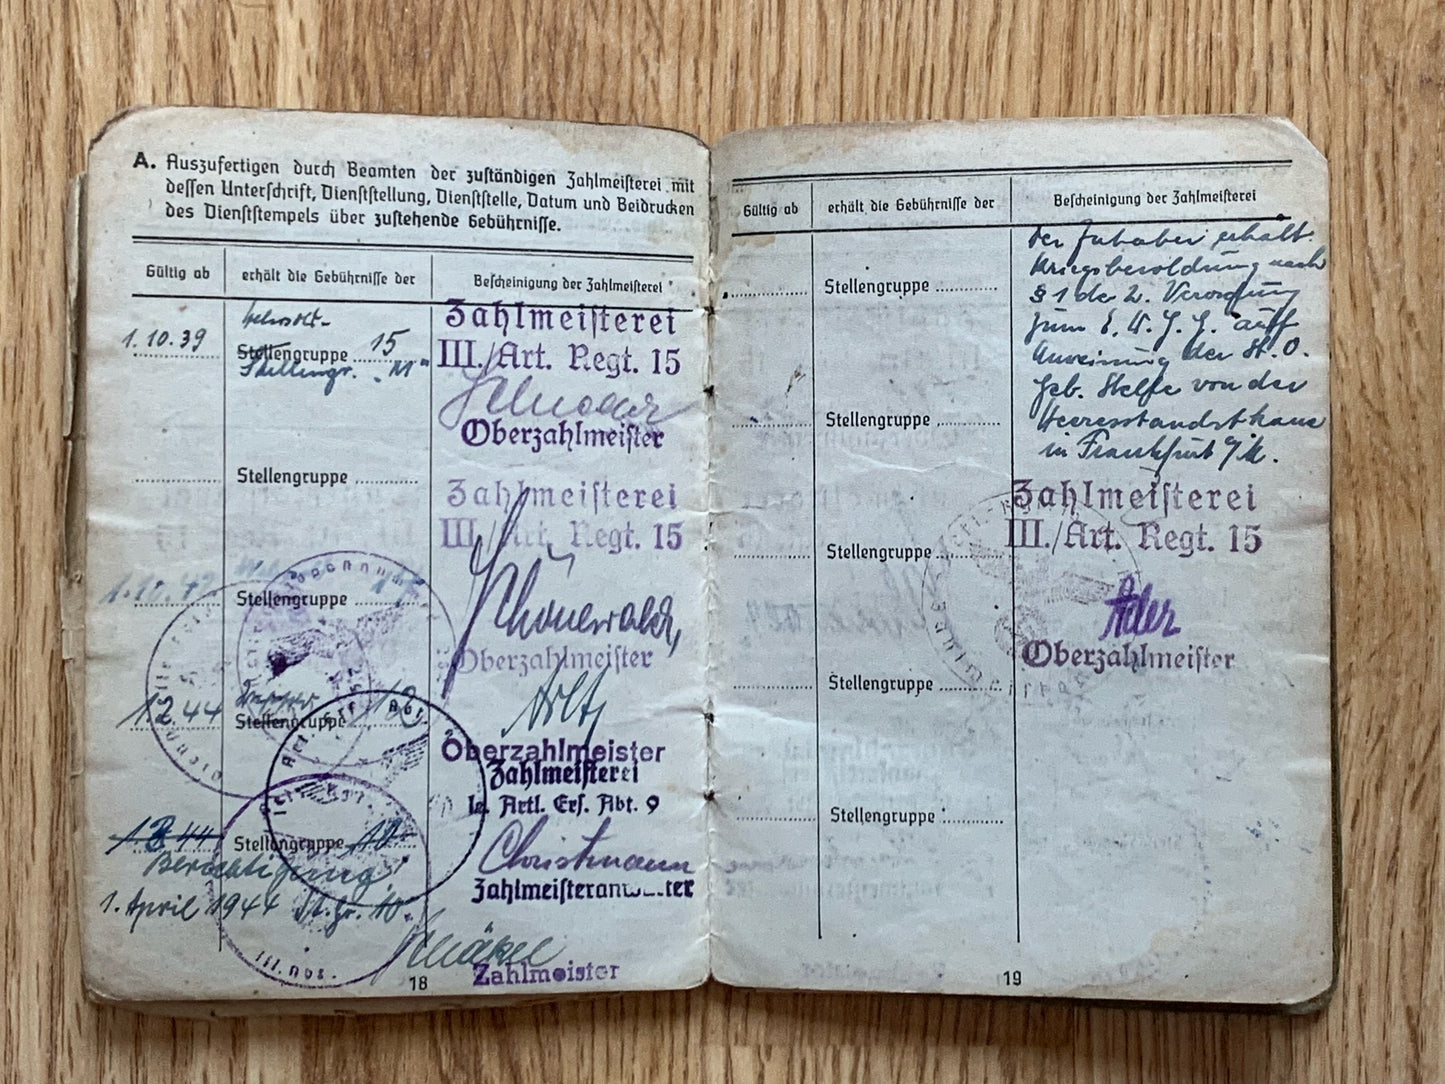 A. Auszufertigen durch Beamten der zuständigen Zahlmeisterei mit
dessen Unterschrift, Dienststellung, Dienststelle, Datum und Beidrucken
des Dienststempels über zustehende Gebührnisse.
Gültig ab
erhält die Gebührnisse der
Bescheinigung der Zahlmeisterei
1.10.39
Stellengruppe 15
Stellengr. "M"
Zahlmeisterei
III./Art. Regt. 15
Oberzahlmeister
Stellengruppe
Zahlmeisterei
III./Art. Regt. 15
1.10.42
Stellengruppe
Schönewald
Oberzahlmeister
1.2.44
Stellengruppe 10
Arlt
Oberzahlmeister
Zahlmeisterei
le. Artl. Ers. Abt. 9
Stellengruppe 10
Christmann
Berichtigung
1. April 1944 St.Gr. 10
III. Abt.
Zahlmeister
18
Gültig ab
erhält die Gebührnisse der
Bescheinigung der Zahlmeisterei
Der Inhaber erhält
Kriegsbesoldung nach
§ 1 der 2. Verordnung
zum E.W.G.G. auf
Anweisung der St.O.
Geb. Stelle von der
Heeresstandortkasse
in Frankfurt
Stellengruppe
Stellengruppe
Zahlmeisterei
III./Art. Regt. 15
Stellengruppe
Ader
Oberzahlmeister
Stellengruppe
Stellengruppe
19